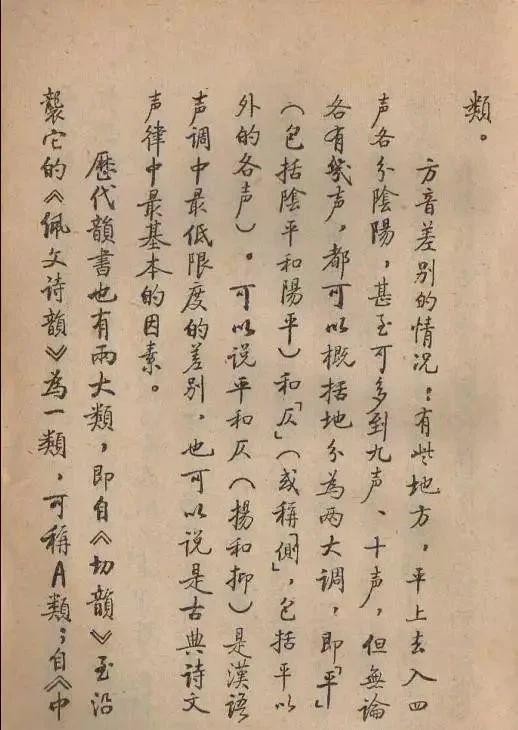 類。
方音差别的情况：有些地方，平上去入四
声各分陰陽，甚至可多到九声、十声，但無論
各有幾声，都可以概括地分為两大調，即「平」
（包括陰平和陽平）和「仄」（或称「側」，包括平以
外的各声）。可以说平和仄（揚和抑）是漢語
声调中最低限度的差别，也可以说是古典诗文
声律中最基本的因素。
歷代韻書也有兩大類，即自《切韻》至沿
襲它的《佩文诗韻》為一類，可稱A類；自《中